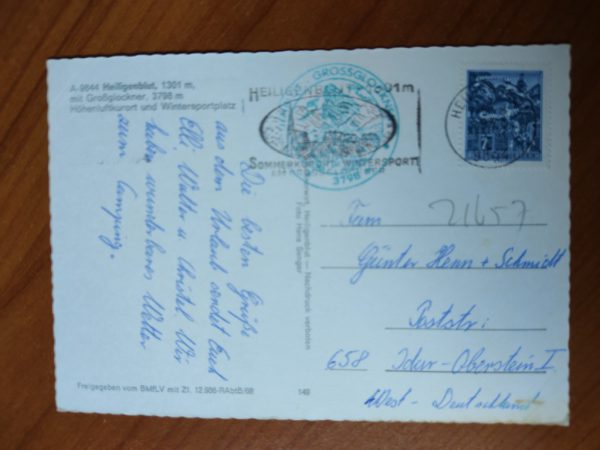 A-9844 Heiligenblut, 1301 m,
mit Großglockner, 3798 m
Höhenluftkurort und Wintersportplatz
Die besten Grüße
aus dem Urlaub sendet Euch
Elli, Walter u. Christel. Wir
haben wunderbares Wetter
zum Camping.
Freigegeben vom BMfLV mit Zl. 12.986-RAbtB/68
149
Heiligenblut — Nachdruck verboten
HEILIGENBLUT 1301m
SOMMERKURORT WINTERSPORT
GROSSGLOCKNER
3798 m
Firm
21657
Günter Henn + Schmidt
Poststr:
658 Idar-Oberstein I
West-Deutschland